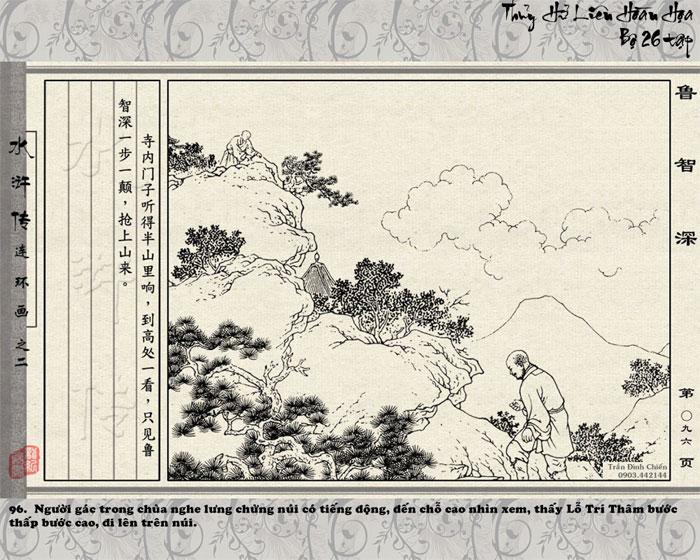 Thủy Hử Liên Hoàn Họa
Bộ 26 tập
水浒传连环画之二
寺内门子听得半山里响，到高处一看，只见鲁
智深一步一颠，抢上山来。
鲁智深
第〇九六页
Trần Đình Chiến
0903.442144
96. Người gác trong chùa nghe lưng chửng núi có tiếng động, đến chỗ cao nhìn xem, thấy Lỗ Trí Thâm bước
thấp bước cao, đi lên trên núi.